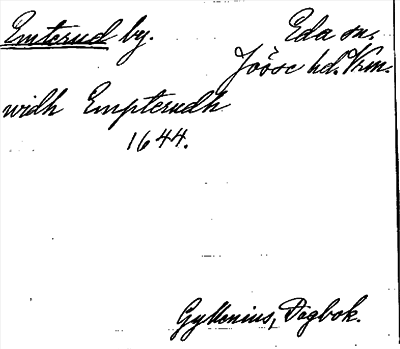 Emterud by. Eda sn.
Jösse hd. Vrm.
widh Empterudh
1644.
Gyllenius, Dagbok.